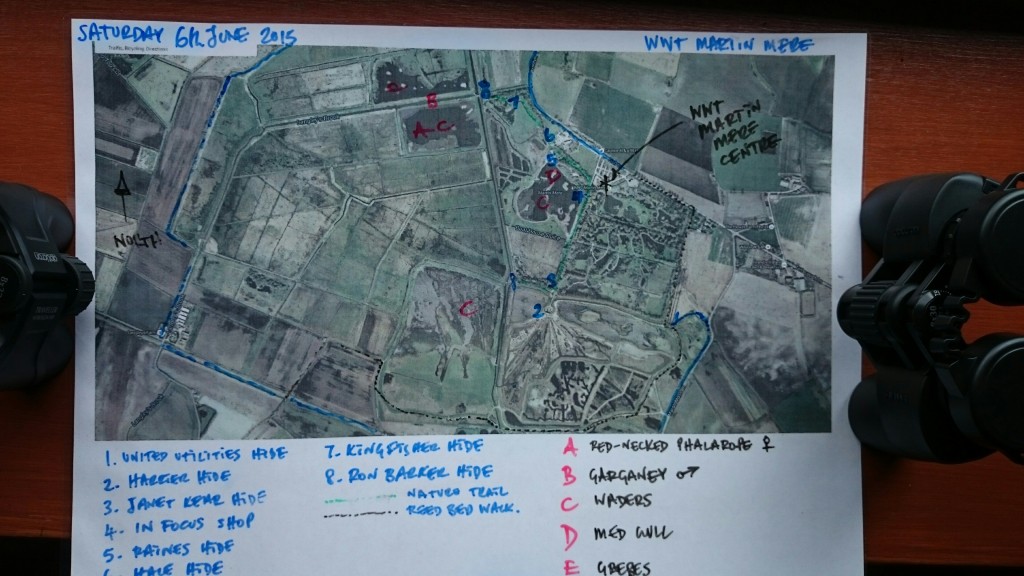 SATURDAY 6th JUNE 2015
WWT MARTIN MERE
Traffic, Bicycling, Directions
WWT
MARTIN
MERE
CENTRE
NORTH
D
B
A-C
D
C
C
8
7
6
5
4
1
3
2
1. UNITED UTILITIES HIDE
2. HARRIER HIDE
3. JANET KEAR HIDE
4. IN FOCUS SHOP
5. RAINES HIDE
6. HALE HIDE
7. KINGFISHER HIDE
8. RON BARKER HIDE
NATURE TRAIL
REED BED WALK.
A RED-NECKED PHALAROPE ♀
B GARGANEY ♂
C WADERS
D MED GULL
E GREBES